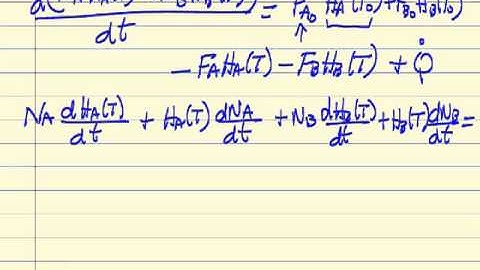 dt = F_A0 H_A(T0) + F_B0 H_B(T0)
- F_A H_A(T) - F_B H_B(T) + Q̇
N_A dH_A(T)/dt + H_A(T) dN_A/dt + N_B dH_B(T)/dt + H_B(T) dN_B/dt =